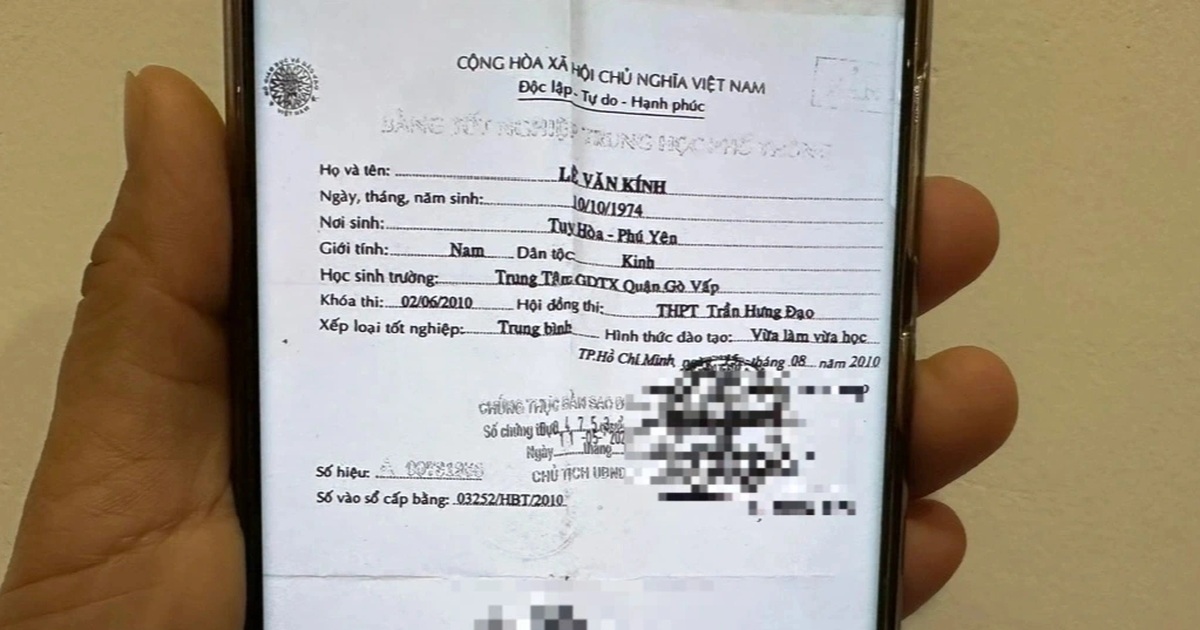 CỘNG HÒA XÃ HỘI CHỦ NGHĨA VIỆT NAM
Độc lập - Tự do - Hạnh phúc
BẰNG TỐT NGHIỆP TRUNG HỌC PHỔ THÔNG
Họ và tên: LÊ VĂN KÍNH
Ngày, tháng, năm sinh: 10/10/1974
Nơi sinh: Tuy Hòa - Phú Yên
Giới tính: Nam Dân tộc Kinh
Học sinh trường: Trung Tâm GDTX Quận Gò Vấp
Khóa thi: 02/06/2010 Hội đồng thi: THPT Trần Hưng Đạo
Xếp loại tốt nghiệp: Trung bình Hình thức đào tạo: Vừa làm vừa học
TP.Hồ Chí Minh, tháng 08 năm 2010
CHỨNG THỰC BẢN SAO
Số chứng thực
Ngày tháng
CHỦ TỊCH UBND
Số hiệu: A
Số vào sổ cấp bằng: 03252/HBT/2010